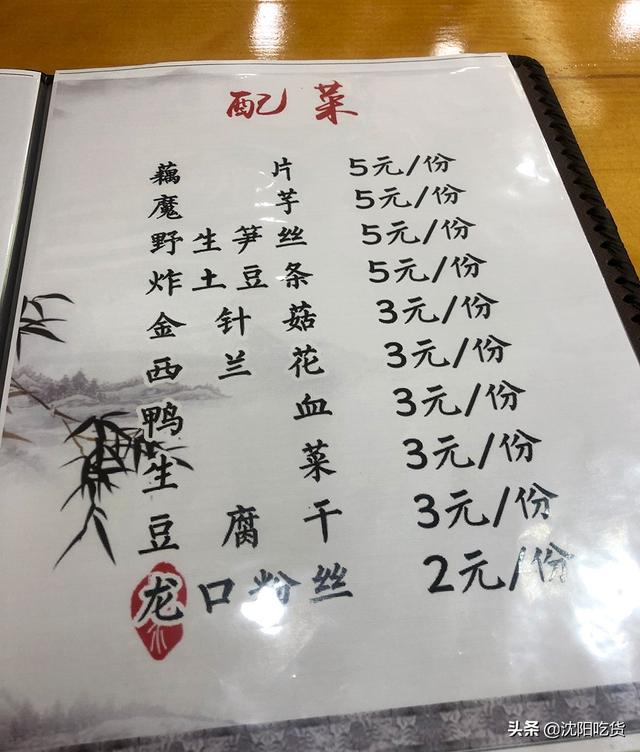 配菜
藕片 5元/份
魔芋 5元/份
野生笋丝 5元/份
炸土豆条 5元/份
金针菇 3元/份
西兰花 3元/份
鸭血 3元/份
生菜 3元/份
豆腐干 3元/份
龙口粉丝 2元/份
头条 @沈阳吃货